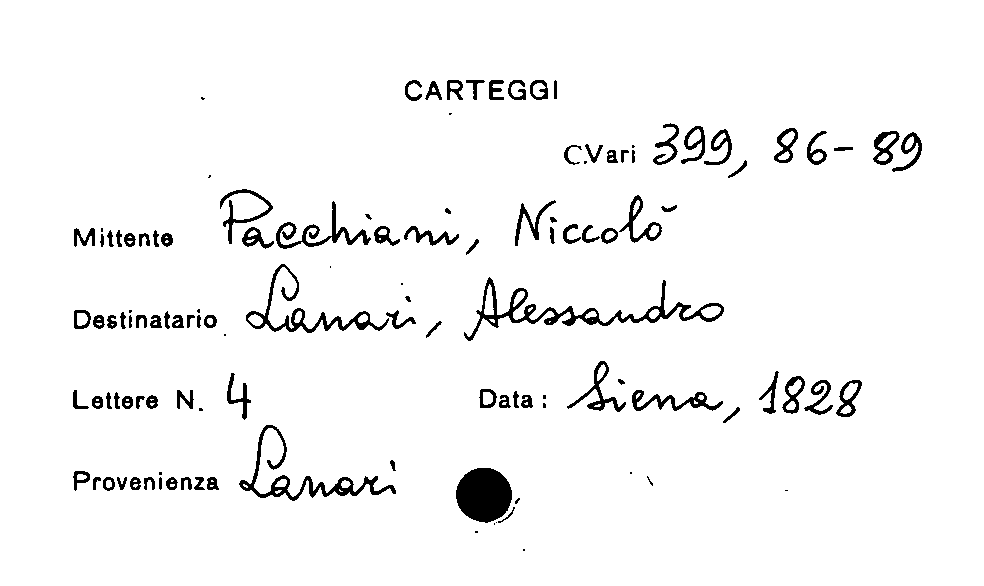 CARTEGGI
C.Vari 399, 86-89
Mittente Pacchiani, Niccolò
Destinatario Lanari, Alessandro
Lettere N. 4 Data: Siena, 1828
Provenienza Lanari